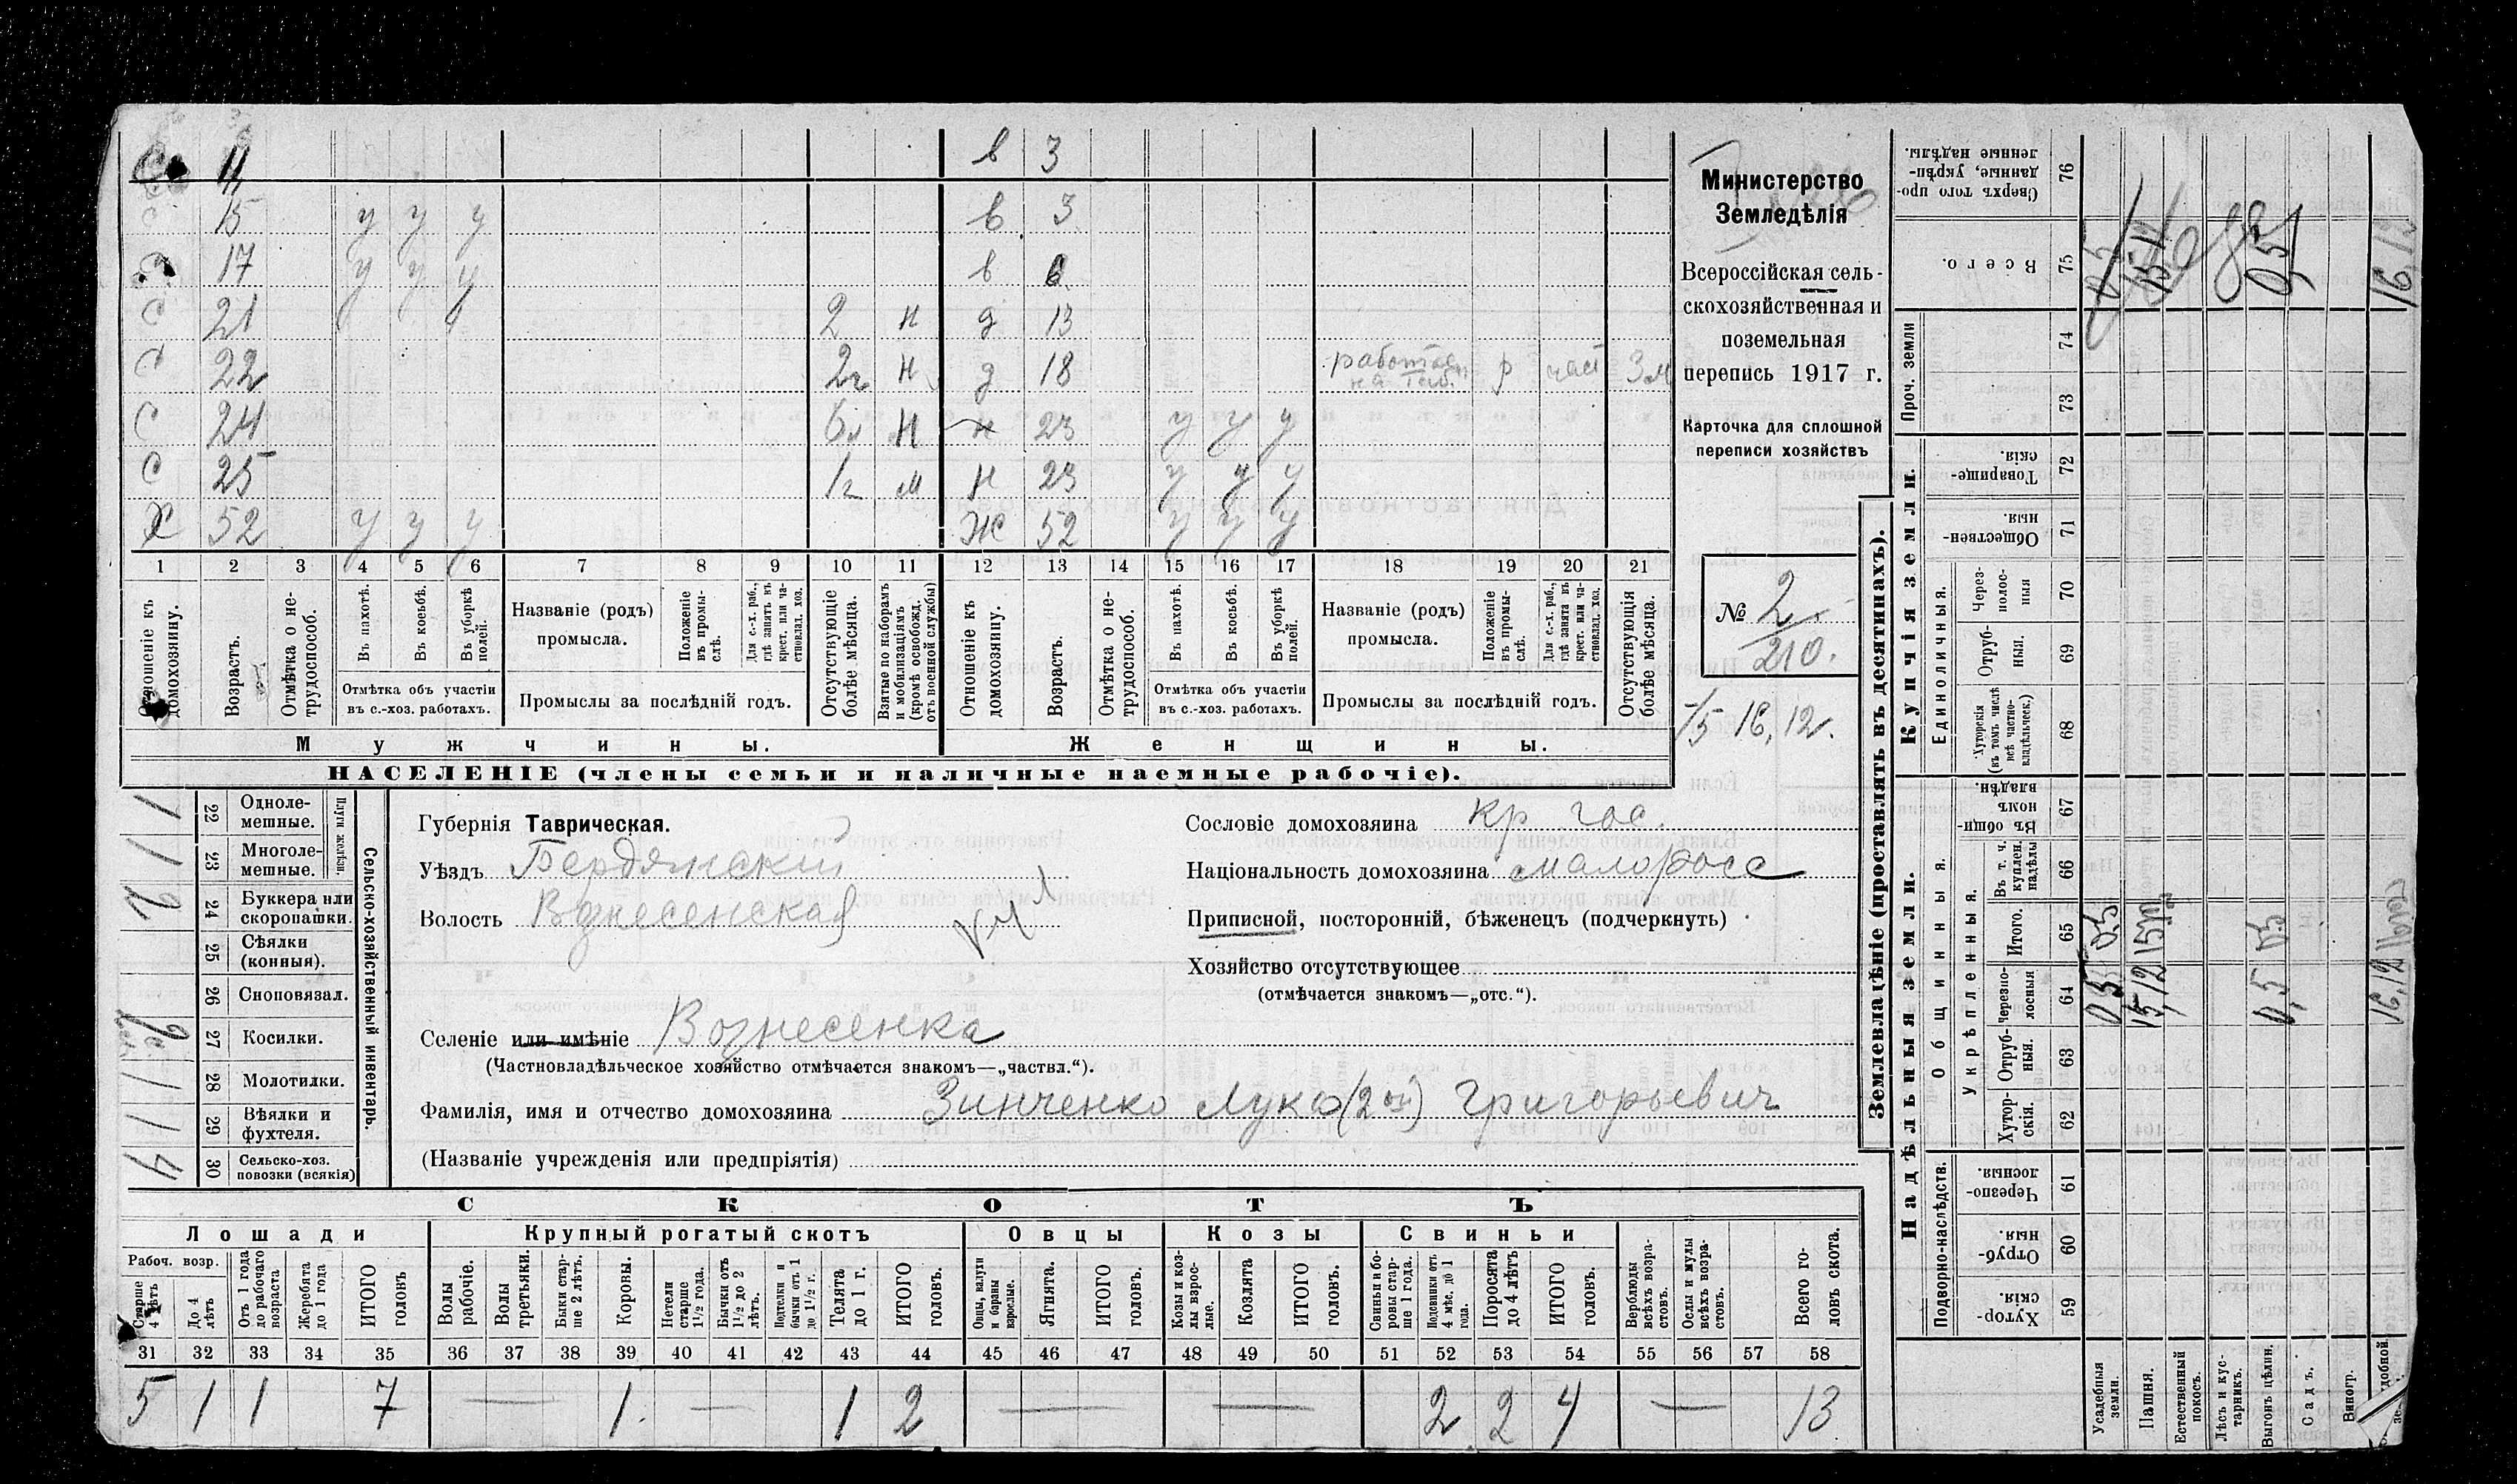 С 11 в 3
с 15 у у у в 3
с 17 у у у в 6
С 21 2 н д 13
С 22 2г н д 18 р 3м
С 24 н н 23 у у у
С 25 1г м н 23 у у у
Х 52 у у у Ж 52 у у у
1 2 3 4 5 6 7 8 9 10 11 12 13 14 15 16 17 18 19 20 21
Отношеніе къ домохозяину.
Возрастъ.
Отмѣтка о не-трудоспособ.
Въ пахотѣ.
Въ косьбѣ.
Въ уборкѣ полей.
Отмѣтка объ участіи въ с.-хоз. работахъ.
Названіе (родъ) промысла.
Положеніе въ промы-слѣ.
Для с.-х. раб., гдѣ занятъ въ крест. или ча-стновлад. хоз.
Промыслы за послѣдній годъ.
Отсутствующіе болѣе мѣсяца.
Взятые по наборамъ и мобилизаціямъ (кромѣ освобожд. отъ военной службы)
Отношеніе къ домохозяину.
Возрастъ.
Отмѣтка о не-трудоспособ.
Въ пахотѣ.
Въ косьбѣ.
Въ уборкѣ полей.
Отмѣтка объ участіи въ с.-хоз. работахъ.
Названіе (родъ) промысла.
Положеніе въ промы-слѣ.
Для с.-х. раб., гдѣ занята въ крест. или ча-стновлад. хоз.
Промыслы за послѣдній годъ.
Отсутствующія болѣе мѣсяца.
Мужчины.
Женщины.
НАСЕЛЕНІЕ (члены семьи и наличные наемные рабочіе).
Министерство
Земледѣлія
Всероссійская сель-
скохозяйственная и
поземельная
перепись 1917 г.
Карточка для сплошной
переписи хозяйствъ
№ 2
210.
16,12.
Сельско-хозяйственный инвентарь.
Плуги желѣзн.
1 22 Одноле-мешные.
1 23 Многоле-мешные.
2 24 Буккера или скоропашки.
25 Сѣялки (конныя).
26 Сноповязал.
27 Косилки.
1 28 Молотилки.
1 29 Вѣялки и фухтеля.
4 30 Сельско-хоз. повозки (всякія)
Губернія Таврическая.
Уѣздъ Бердянскій
Волость Вознесенская
Селеніе или имѣніе Вознесенка
(Частновладѣльческое хозяйство отмѣчается знакомъ—„частвл.“).
Фамилія, имя и отчество домохозяина Зинченко Лука (2ой) Григорьевич
(Названіе учрежденія или предпріятія)
Сословіе домохозяина кр гос.
Національность домохозяина малоросс
Приписной, посторонній, бѣженецъ (подчеркнуть)
Хозяйство отсутствующее
(отмѣчается знакомъ—„отс.“).
СКОТЪ
Лошади
Рабоч. возр.
Старше 4 лѣтъ
До 4 лѣтъ
Отъ 1 года до рабочаго возраста
Жеребята до 1 года
ИТОГО головъ
Крупный рогатый скотъ
Волы рабочіе.
Волы третьяки.
Быки стар-ше 2 лѣтъ.
Коровы.
Нетели старше 1½ года.
Бычки отъ 1½ до 2 лѣтъ.
Подтелки и бычки отъ 1 до 1½ г.
Телята до 1 г.
ИТОГО головъ.
Овцы
Овцы, валухи и бараны взрослые.
Ягнята.
ИТОГО головъ.
Козы
Козы и коз-лы взрос-лые.
Козлята
ИТОГО головъ.
Свиньи
Свиньи и бо-ровы стар-ше 1 года.
Подсвинки отъ 4 мѣс. до 1 года.
Поросята до 4 лѣтъ
ИТОГО головъ.
Верблюды всѣхъ возра-стовъ.
Ослы и мулы всѣхъ возра-стовъ.
Всего го-ловъ скота.
31 32 33 34 35 36 37 38 39 40 41 42 43 44 45 46 47 48 49 50 51 52 53 54 55 56 57 58
5 1 1 7 — 1. — 1 2 — — 2 2 4 — 13
Землевладѣніе (проставлять въ десятинахъ).
Купчія земли.
Проч. земли
Сверхъ того про-данные, укрѣп-ленные надѣлы. 76
Всего. 75
74
73
Товарище-скія. 72
Обществен-ныя. 71
Единоличныя.
Через-полос-ныя 70
Отруб-ныя. 69
Хуторскія (въ томъ числѣ всѣ частно-владѣльческ.) 68
Надѣльныя земли.
Общинныя.
Въ общин-номъ владѣн. 67
Укрѣпленныя.
Въ т. ч. куплен. надѣлы 66
Итого. 65
Черезпо-лосныя 64
Отруб-ныя. 63
Хутор-скія. 62
Подворно-наслѣдств.
Черезпо-лосныя. 61
Отруб-ныя. 60
Хутор-скія. 59
0,5 15,12 0,5 16,12
Усадебныя земли.
Пашня.
Естественный покосъ.
Лѣсъ и кус-тарникъ.
Выгонъ цѣлин.
Садъ.
Виногр.